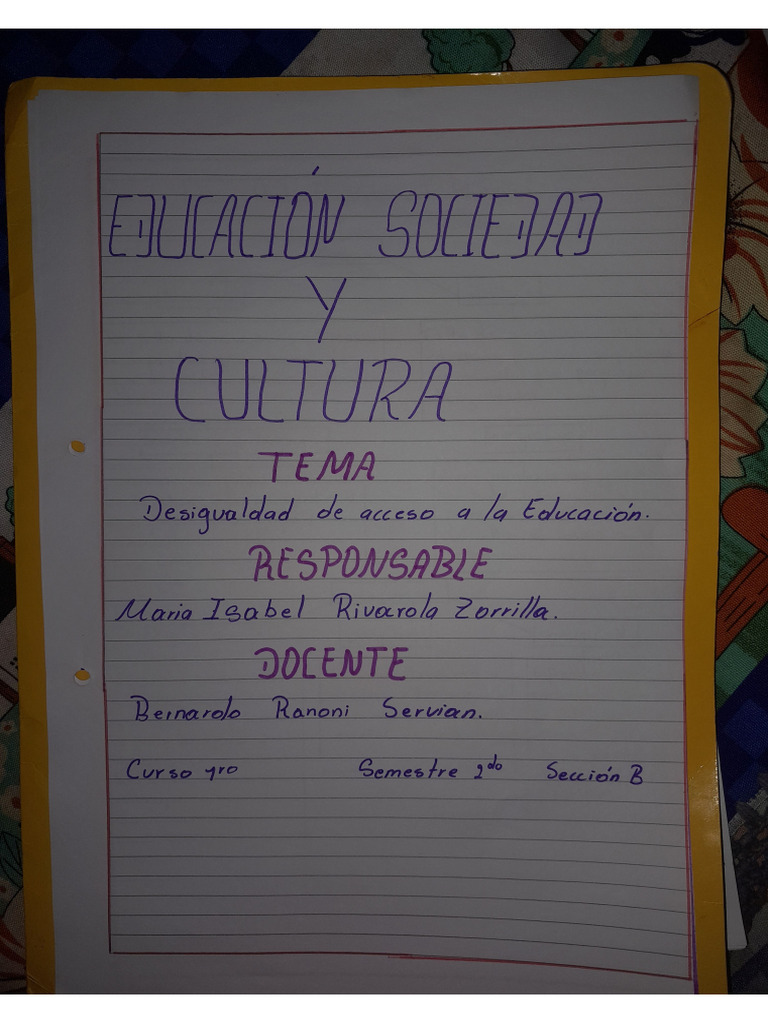 EDUCACIÓN SOCIEDAD
Y
CULTURA
TEMA
Desigualdad de acceso a la Educación.
RESPONSABLE
Maria Isabel Rivarola Zorrilla.
DOCENTE
Bernardo Ranoni Servian.
Curso 1ro Semestre 2do Sección B